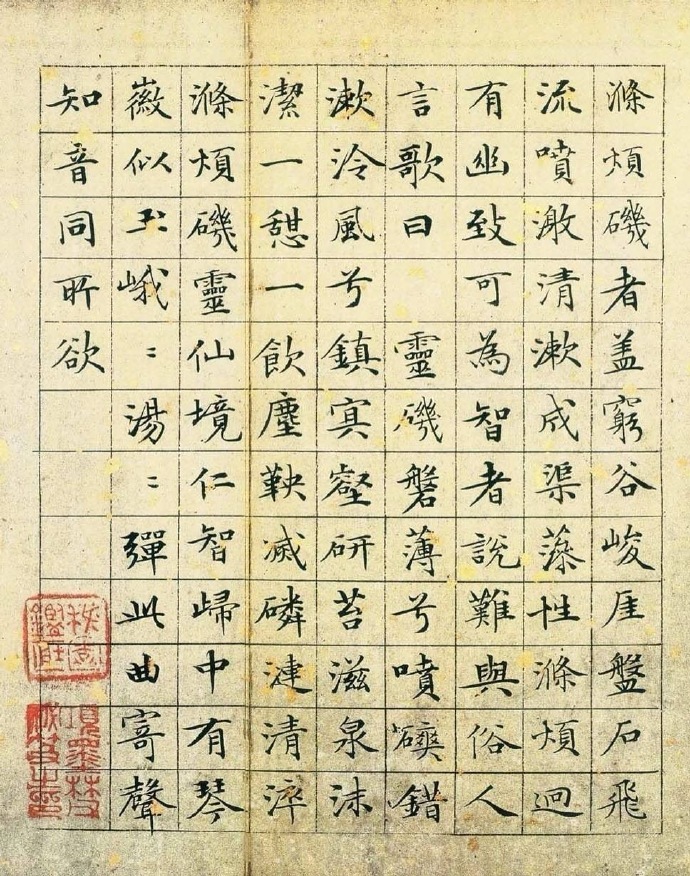 滌煩磯者盖窮谷峻厓盤石飛
流噴激清漱成渠藻性滌煩迥
有幽致可為智者說難與俗人
言歌曰　靈磯磐薄兮噴錯
漱泠風兮鎮㝠壑研苔滋泉沫
潔一憇一飲塵鞅滅磷漣清淬
滌煩磯靈仙境仁智歸中有琴
徽似玉峨〻湯〻彈此曲寄聲
知音同所欲
項墨林父
秘笈之印